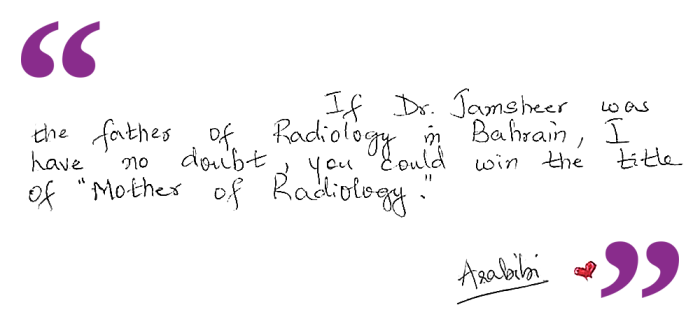 If Dr. Jamsheer was
the father of Radiology in Bahrain, I
have no doubt, you could win the title
of "Mother of Radiology."
Asabibi